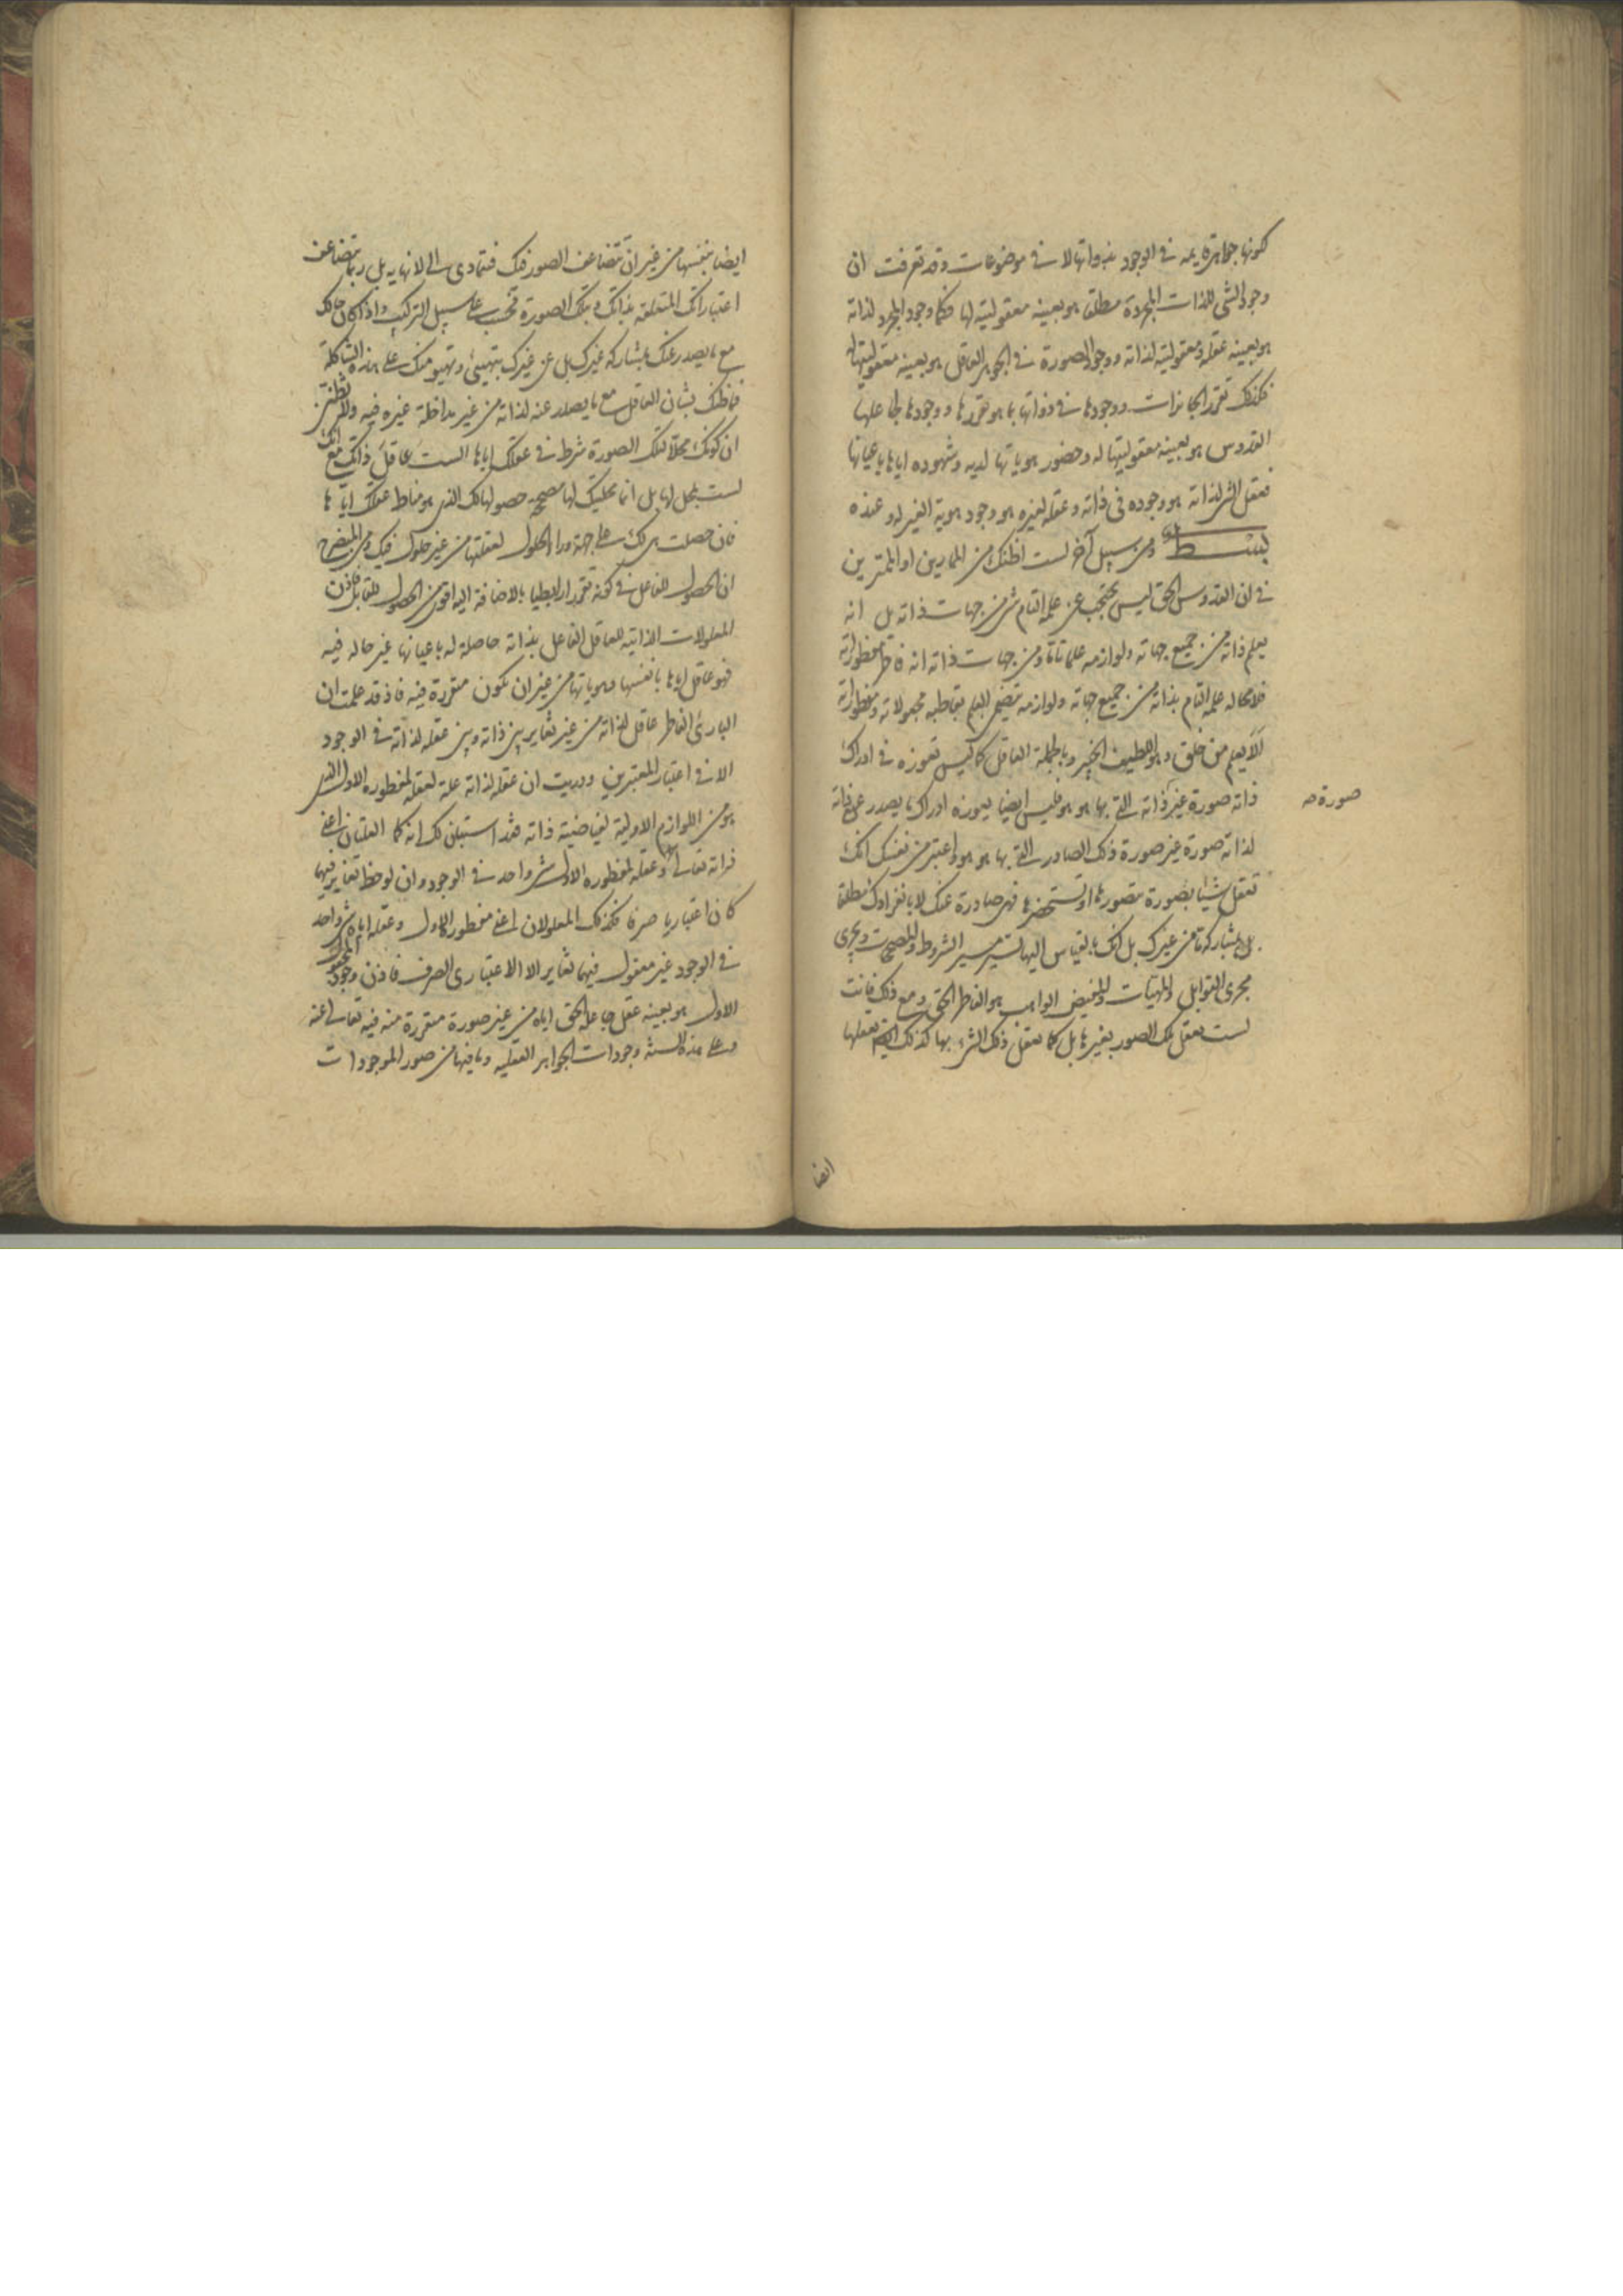 كونها جواهر قديمه في الوجود بذواتها لا في موضوعات وقد تعرفت ان
وجود الشئ للذات المجردة مطلقا هو بعينه معقوليته لها فكما وجود المجرد لذاته
هو بعينه عقله ومعقوليته لذاته ووجود الصورة في الجوهر العاقل هو بعينه معقوليتها له
فكذلك تقرر الجائزات ووجودها في ذواتها بما هو تقررها ووجودها لجاعلها
القدوس هو بعينه معقوليتها له وحضور هوياتها لديه وشهوده اياها باعيانها
فعقل الشئ لذاته هو وجوده في ذاته وعقله لغيره هو وجود هوية الغير له وعنده
بسط ومن سبيل آخر لست اظنك من الممارين او الممترين
في ان القدوس الحق ليس يحتجب عن علمه التام شئ من جهات ذاته بل انه
يعلم ذاته من جميع جهاته ولوازمه علما تاما ومن جهات ذاته انه فاطر مفطوراته
فلا محاله علمه التام بذاته من جميع جهاته ولوازمه يتضمن العلم بقاطبه مجعولاته ومفطوراته
الا يعلم من خلق وهو اللطيف الخبير وبالجملة العاقل كما ليس يعوزه في ادراك
ذاته صورة غير ذاته التي بها هو هو فليس ايضا يعوزه ادراك ما يصدر عن ذاته
صورة صه
لذاته صورة غير صورة ذلك الصادر التي بها هو هو واعتبر من نفسك انك
تعقل شيئا بصورة تتصورها او تستحضرها فهي صادرة عنك لا بانفرادك مطلقا
بل بمشاركة ما من غيرك بل انك بالقياس اليها تسير مسير الشروط والمصححات وتجري
مجرى القوابل والمهيئات والمفيض الواهب هو الفاطر الحق ومع ذلك فانت
لست تعقل تلك الصور بغيرها بل كما تعقل ذلك الشئ بها كذلك ايضا تعقلها
ايضا
ايضا بنفسها من غير ان تتضاعف الصور فيك فتتمادى الى لا نهايه بل ربما تتضاعف
اعتباراتك المتعلقه بذاتك وبتلك الصورة فحسب على سبيل التركيب واذا كان حالك
مع ما يصدر عنك بمشاركة غيرك بل عن غيرك بتهيئ وتهيؤ منك على هذه الشاكلة
فما ظنك بشان العاقل مع ما يصدر عنه لذاته من غير مداخلة غيره فيه ولا تظنن
ان كونك محلا لتلك الصورة شرط في عقلك اياها الست عاقل ذاتك مع انك
لست بمحل لها بل انما محليتك لها مصححه حصولها لك الذي هو مناط عقلك اياها
فان حصلت هي لك على جهة وراء الحلول لعقلتها من غير حلول فيك ومن المتضح
ان الحصول للفاعل في كونه تقررا رابطيا بالاضافة اليه اقوى من الحصول للقابل فاذن
المعلولات الذاتيه للعاقل الفاعل بذاته حاصلة له باعيانها غير حاله فيه
فهو عاقل اياها بانفسها وهوياتها من غير ان تكون متقررة فيه فاذ قد علمت ان
البارئ الفاطر عاقل لذاته من غير تغاير بين ذاته وبين عقله لذاته في الوجود
الا في اعتبار المعتبرين ودريت ان عقله لذاته علة لعقله لمفطوره الاول الذي
هو من اللوازم الاولية لفياضية ذاته فقد استبان لك انه كما العلتان اعني
ذاته تعالى وعقله لمفطوره الاول شئ واحد في الوجود وان لوحظ تغاير فيهما
كان اعتباريا صرفا فكذلك المعلولان اعني مفطوره الاول وعقله اياه شئ واحد
في الوجود غير معقول فيهما تغاير الا الاعتباري الصرف فاذن وجود المجعول
الاول هو بعينه عقل جاعله الحق اياه من غير صورة متقررة منه فيه تعالى عنه
وعلى هذه السنة وجودات الجواهر العقليه وما فيها من صور الموجودات